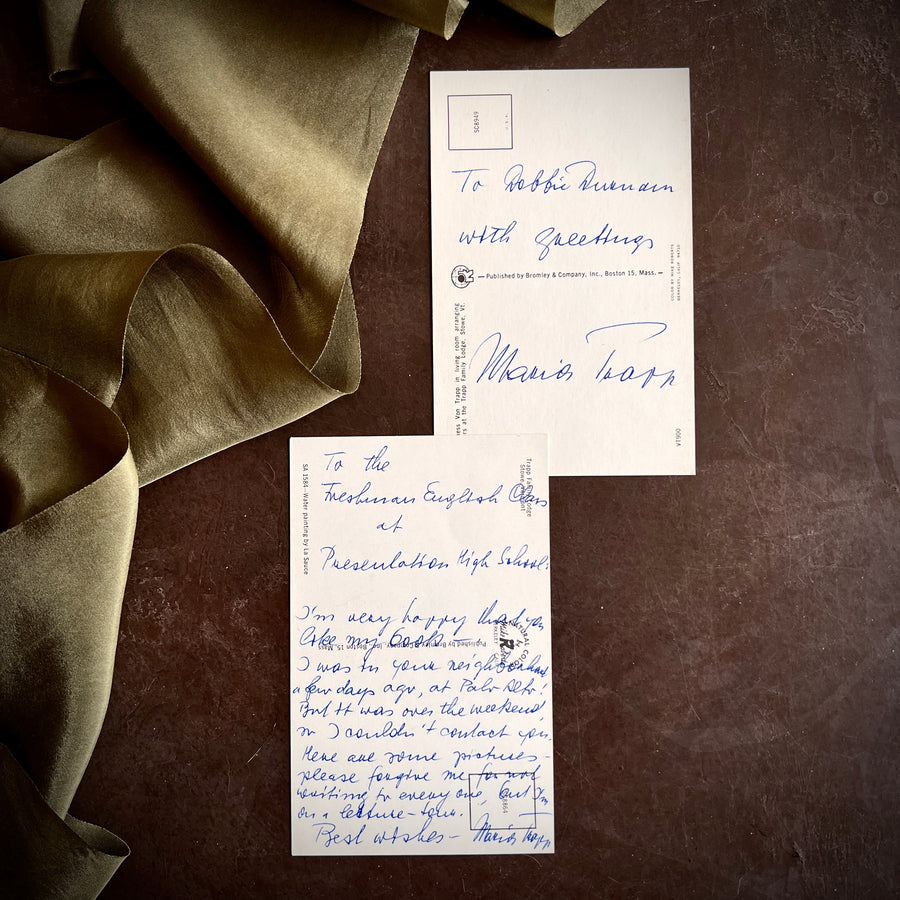 SC8949
U.S.A.
To Debbie Durnam
with greetings
Published by Bromley & Company, Inc., Boston 15, Mass.
COLOR BY MIKE ROBERTS
BERKELEY, CALIF. 94710
ess Von Trapp in living room arranging
rs at the Trapp Family Lodge, Stowe, Vt.
Maria Trapp
V0090
To the
Freshman English Class
at
Presentation High School:
Trapp Family Lodge
Stowe, Vermont
SA 1584—Water painting by La Sauce
I'm very happy that you
like my book —
Published by Bromley & Company, Inc., Boston 15, Mass.
NATURAL COLOR
I was in your neighborhood
a few days ago, at Palo Alto!
But it was over the weekend,
so I couldn't contact you.
Here are some pictures -
please forgive me for not
writing to everyone, but I'm
on a lecture-tour.
Best wishes - Maria Trapp